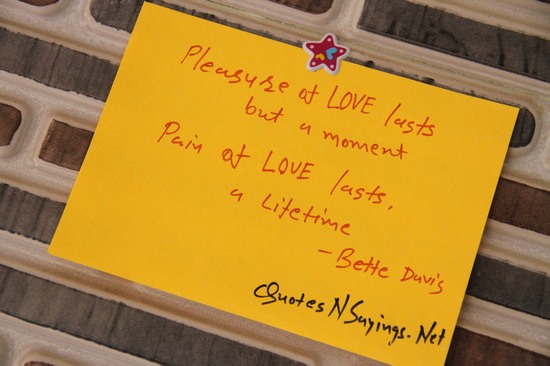 Pleasure of LOVE lasts
but a moment
Pain of LOVE lasts,
a Lifetime
- Bette Davis
QuotesNSayings.Net